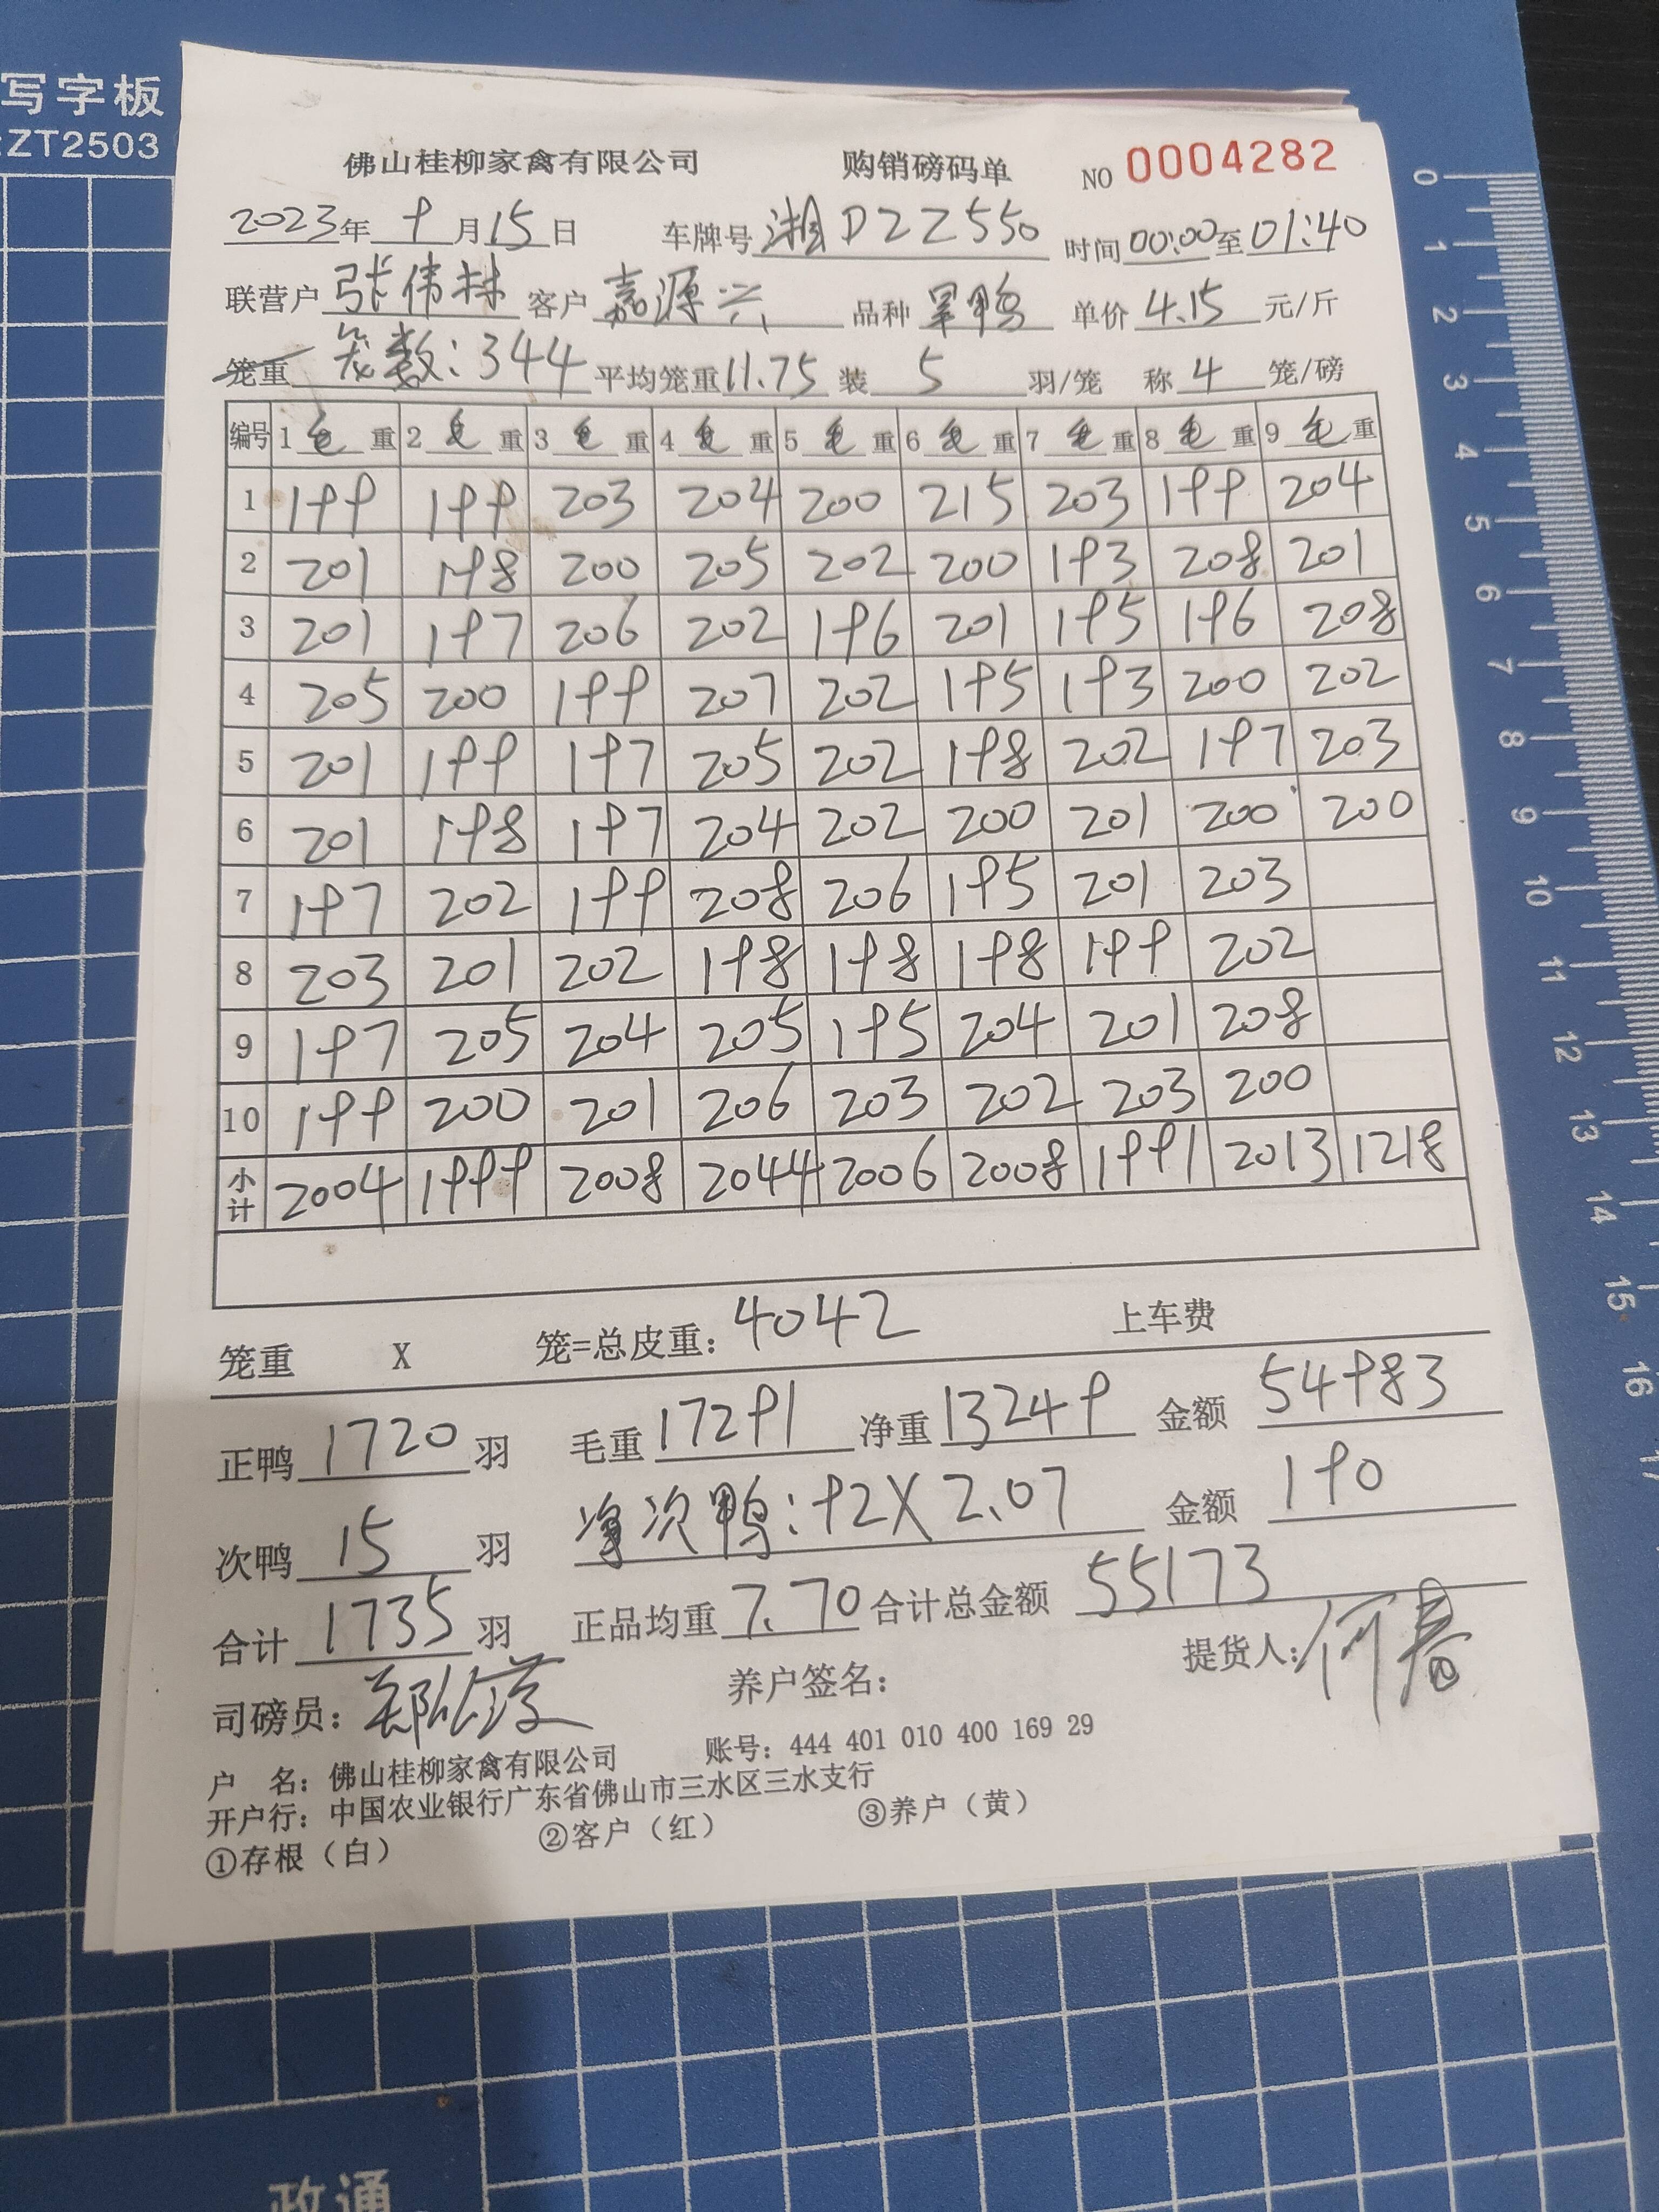 写字板
:ZT2503
佛山桂柳家禽有限公司 购销磅码单 NO 0004282
2023年 9月15日 车牌号 湘DZZ550 时间00:00至01:40
联营户 张伟林 客户 嘉源兴 品种 旱鸭 单价 4.15 元/斤
笼重 笼数:344 平均笼重11.75 装 5 羽/笼 称 4 笼/磅
编号 1毛重 2毛重 3毛重 4毛重 5毛重 6毛重 7毛重 8毛重 9毛重
1 199 199 203 204 200 215 203 199 204
2 201 198 200 205 202 200 193 208 201
3 201 197 206 202 196 201 195 196 208
4 205 200 199 207 202 195 193 200 202
5 201 199 197 205 202 198 202 197 203
6 201 198 197 204 202 200 201 200 200
7 197 202 199 208 206 195 201 203
8 203 201 202 198 198 198 199 202
9 197 205 204 205 195 204 201 208
10 199 200 201 206 203 202 203 200
小计 2004 1999 2008 2044 2006 2008 1991 2013 1218
笼重 X 笼=总皮重: 4042 上车费
正鸭 1720 羽 毛重 17291 净重 13249 金额 54983
次鸭 15 羽 净次鸭:92X2.07 金额 190
合计 1735 羽 正品均重 7.70 合计总金额 55173
司磅员: 养户签名: 提货人:何春
户 名: 佛山桂柳家禽有限公司 账号: 444 401 010 400 169 29
开户行: 中国农业银行广东省佛山市三水区三水支行
①存根（白） ②客户（红） ③养户（黄）
0 1 2 3 4 5 6 7 8 9 10 11 12 13 14 15 16 17
政通